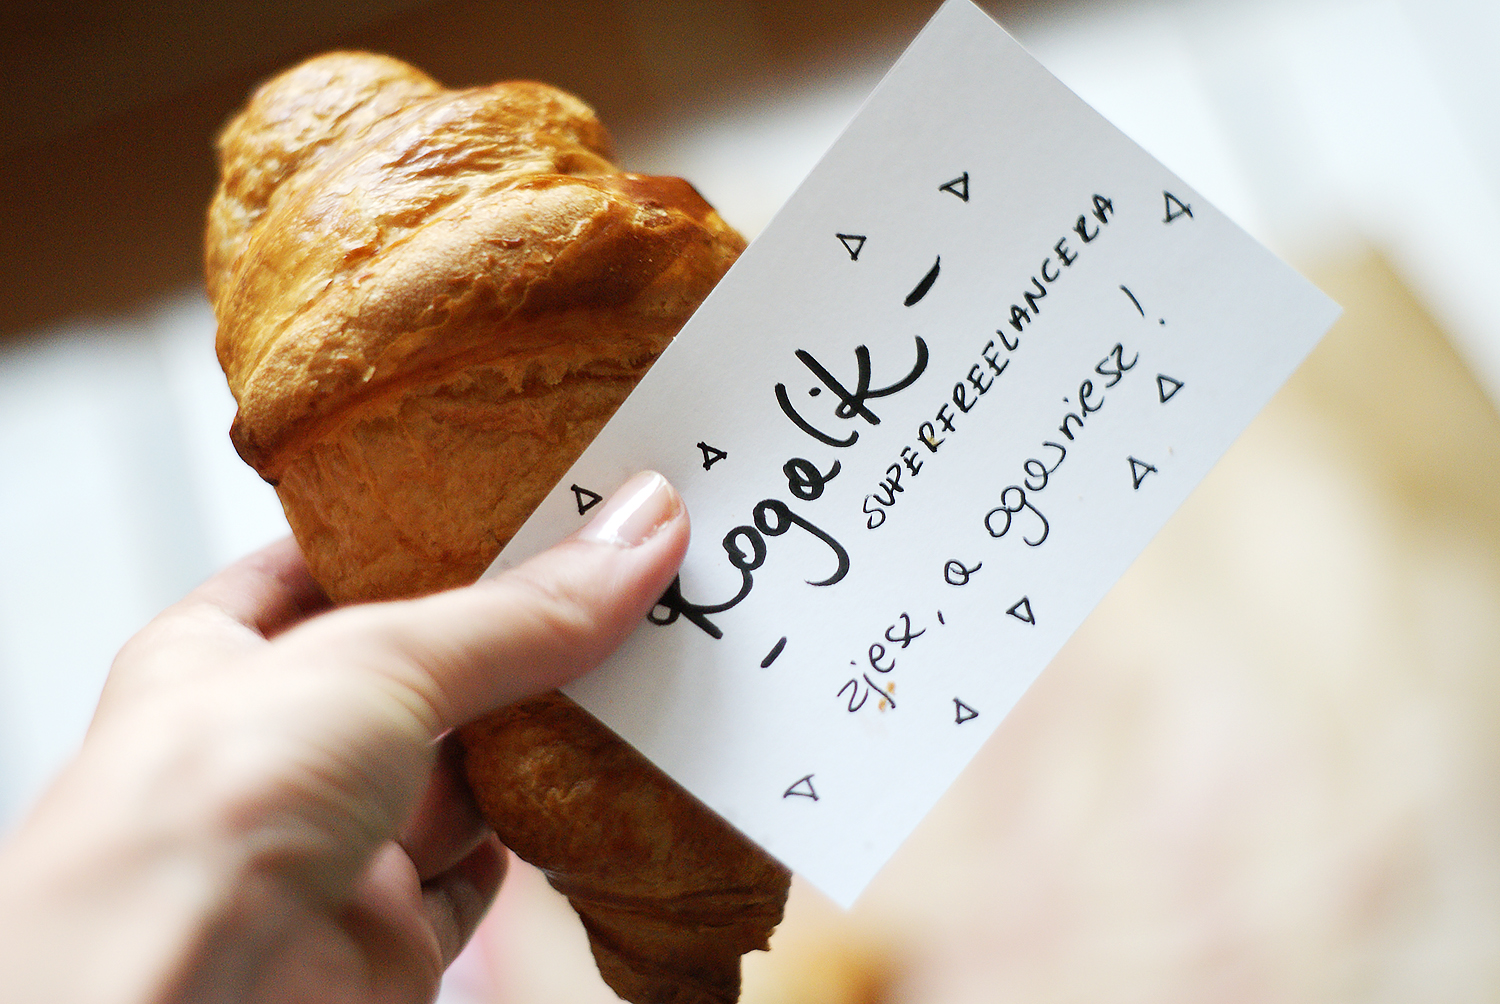 - Rogalik -
SUPERFREELANCERA
zjesz, a ogarniesz!